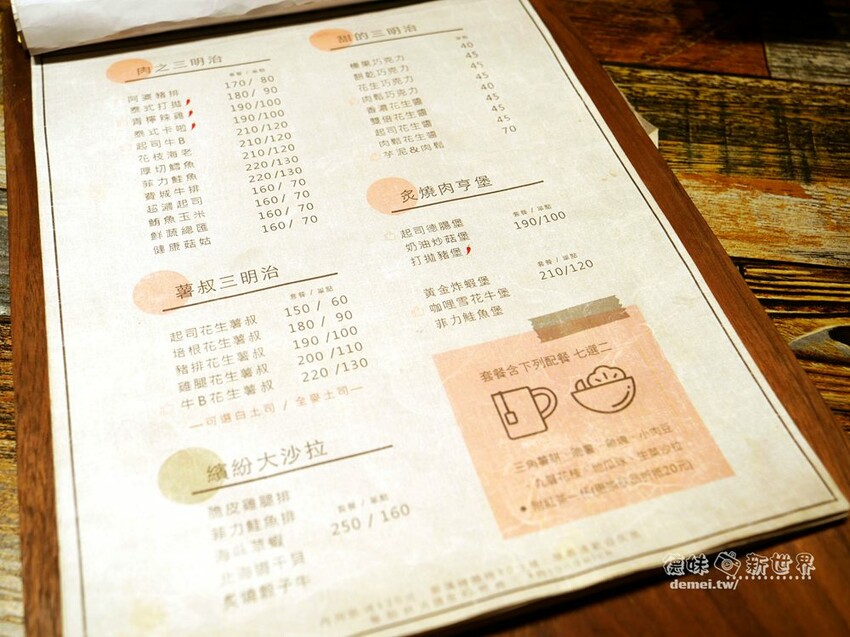 肉之三明治
套餐 / 單點
阿嬤豬排 170 / 80
泰式打拋 180 / 90
青檸辣雞 190/100
泰式卡啦 190/100
起司牛B 210/120
花枝海老 210/120
厚切鱈魚 210/120
菲力鮭魚 220/130
費城牛排 220/130
超濃起司 160/ 70
鮪魚玉米 160/ 70
鮮蔬總匯 160/ 70
健康菇菇 160/ 70
薯叔三明治
套餐 / 單點
起司花生薯叔 150 / 60
培根花生薯叔 180 / 90
豬排花生薯叔 190 /100
雞腿花生薯叔 200 /110
牛B花生薯叔 220 /130
—可選白土司 / 全麥土司—
繽紛大沙拉
套餐 / 單點
脆皮雞腿排
菲力鮭魚排 250 / 160
海味草蝦
北海道干貝
炙燒骰子牛
甜的三明治
榛果巧克力 40
餅乾巧克力 45
花生巧克力 45
肉鬆巧克力 45
香濃花生醬 40
雙倍花生醬 45
起司花生醬 45
肉鬆花生醬 45
芋泥&肉鬆 70
炙燒肉亨堡
套餐 / 單點
起司德腸堡 190/100
奶油炒菇堡
打拋豬堡
套餐 / 單點
黃金炸蝦堡 210/120
咖哩雪花牛堡
菲力鮭魚堡
套餐含下列配餐 七選二
德妹 新世界
demei.tw/